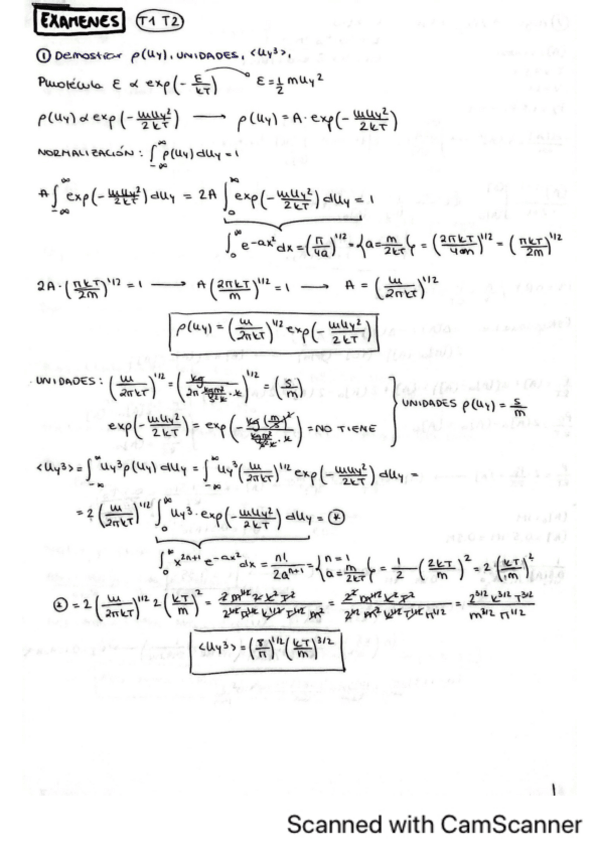 EXAMENES T1 T2
① Demostrar ρ(uy), UNIDADES, <uy³>,
Pmolécula ε ∝ exp(-ε/kT) ε=½muy²
ρ(uy) ∝ exp(-muy²/2kT) → ρ(uy) = A·exp(-muy²/2kT)
NORMALIZACIÓN: ∫_{-∞}^{∞} ρ(uy) duy = 1
A∫_{-∞}^{∞} exp(-muy²/2kT) duy = 2A∫_0^∞ exp(-muy²/2kT) duy = 1
∫_0^∞ e^{-ax²}dx = (π/4a)^{1/2} = {a = m/2kT} = (2πkT/4m)^{1/2} = (πkT/2m)^{1/2}
2A·(πkT/2m)^{1/2} = 1 → A(2πkT/m)^{1/2} = 1 → A = (m/2πkT)^{1/2}
ρ(uy) = (m/2πkT)^{1/2} exp(-muy²/2kT)
UNIDADES: (m/2πkT)^{1/2} = (kg/2π kgm²/s²k·k)^{1/2} = (s/m)
exp(-muy²/2kT) = exp(-kg(m/s)²/kgm²/s²k·k) = NO TIENE
UNIDADES ρ(uy) = s/m
<uy³> = ∫_{-∞}^{∞} uy³ρ(uy) duy = ∫_{-∞}^{∞} uy³(m/2πkT)^{1/2} exp(-muy²/2kT) duy =
= 2(m/2πkT)^{1/2} ∫_0^∞ uy³·exp(-muy²/2kT) duy = ⊛
∫_0^∞ x^{2n+1} e^{-ax²}dx = n!/2a^{n+1} = {n = 1, a = m/2kT} = ½(2kT/m)² = 2(kT/m)²
⊛ = 2(m/2πkT)^{1/2} 2(kT/m)² = = = 2^{3/2} k^{3/2} T^{3/2}/m^{3/2} π^{1/2}
<uy³> = (8/π)^{1/2} (kT/m)^{3/2}
1
Scanned with CamScanner